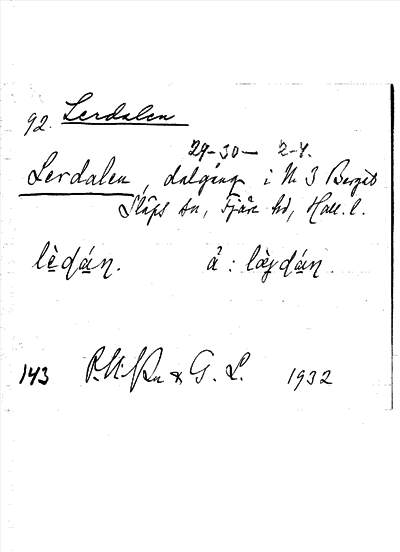 92. Lerdalen
29-30- 2-4.
Lerdalen, dalgång i N 3 Berget
Släps sn, Fjäre hd, Hall. l.
lèdán. å: lægdán.
143 & G. L. 1932